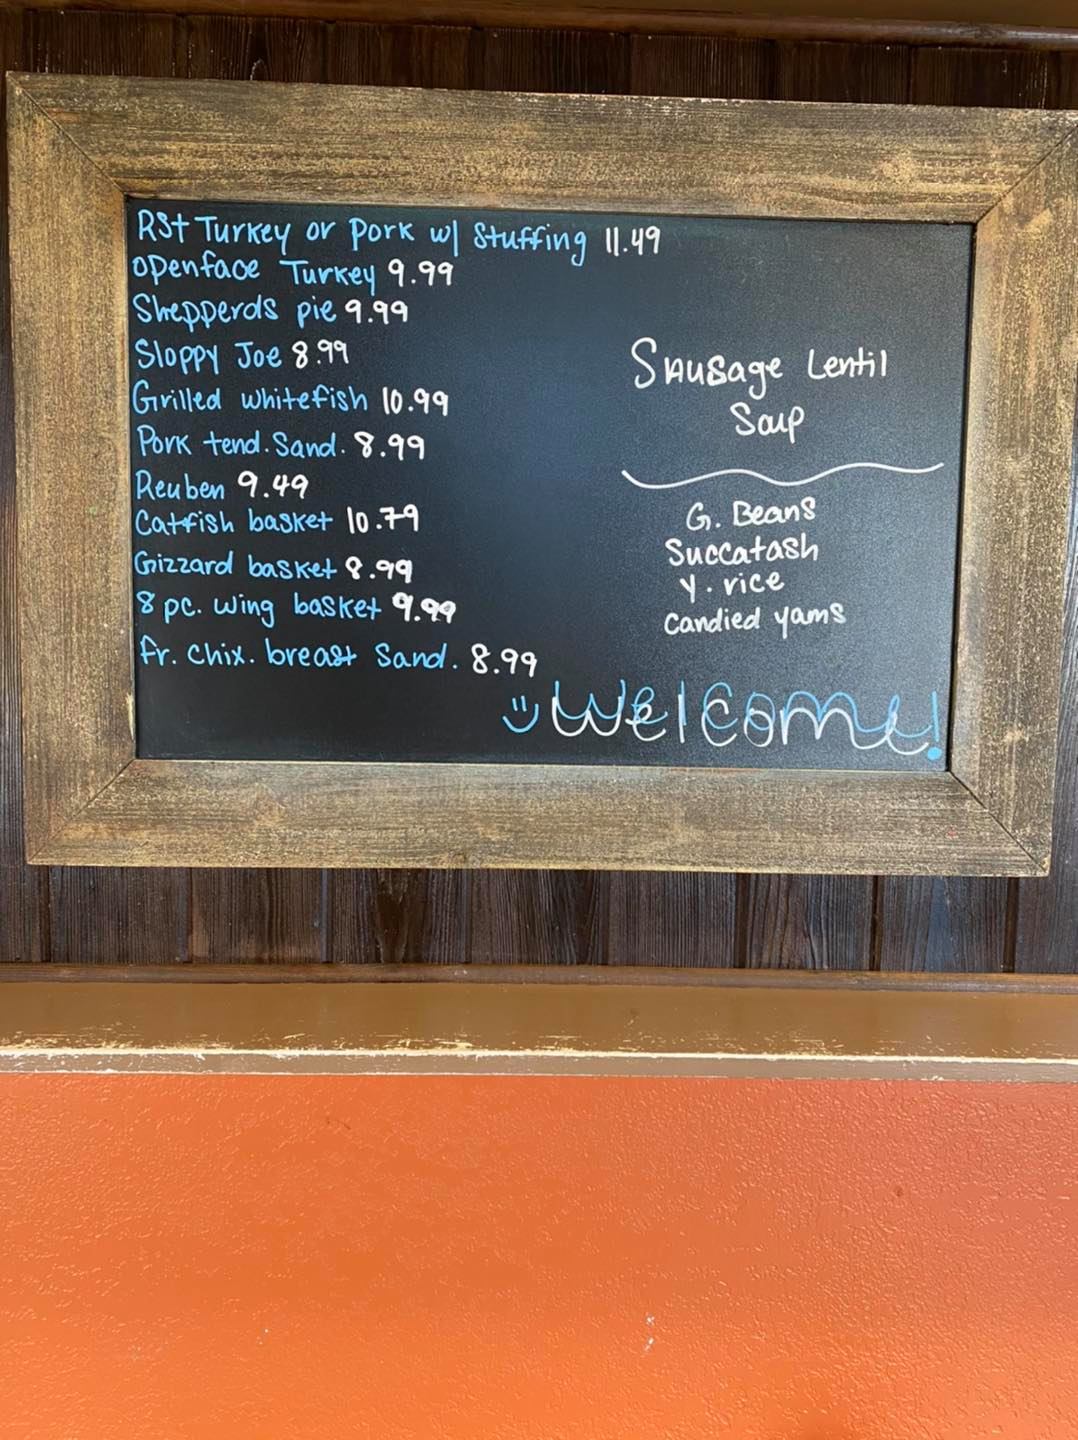 RSt Turkey or Pork w/ Stuffing 11.49
openface Turkey 9.99
Shepperds pie 9.99
Sloppy Joe 8.99
Grilled whitefish 10.99
Pork tend. Sand. 8.99
Reuben 9.49
Catfish basket 10.79
Gizzard basket 8.99
8 pc. wing basket 9.99
fr. chix. breast Sand. 8.99
Sausage Lentil
Soup
G. Beans
Succatash
Y. rice
Candied yams
Welcome!